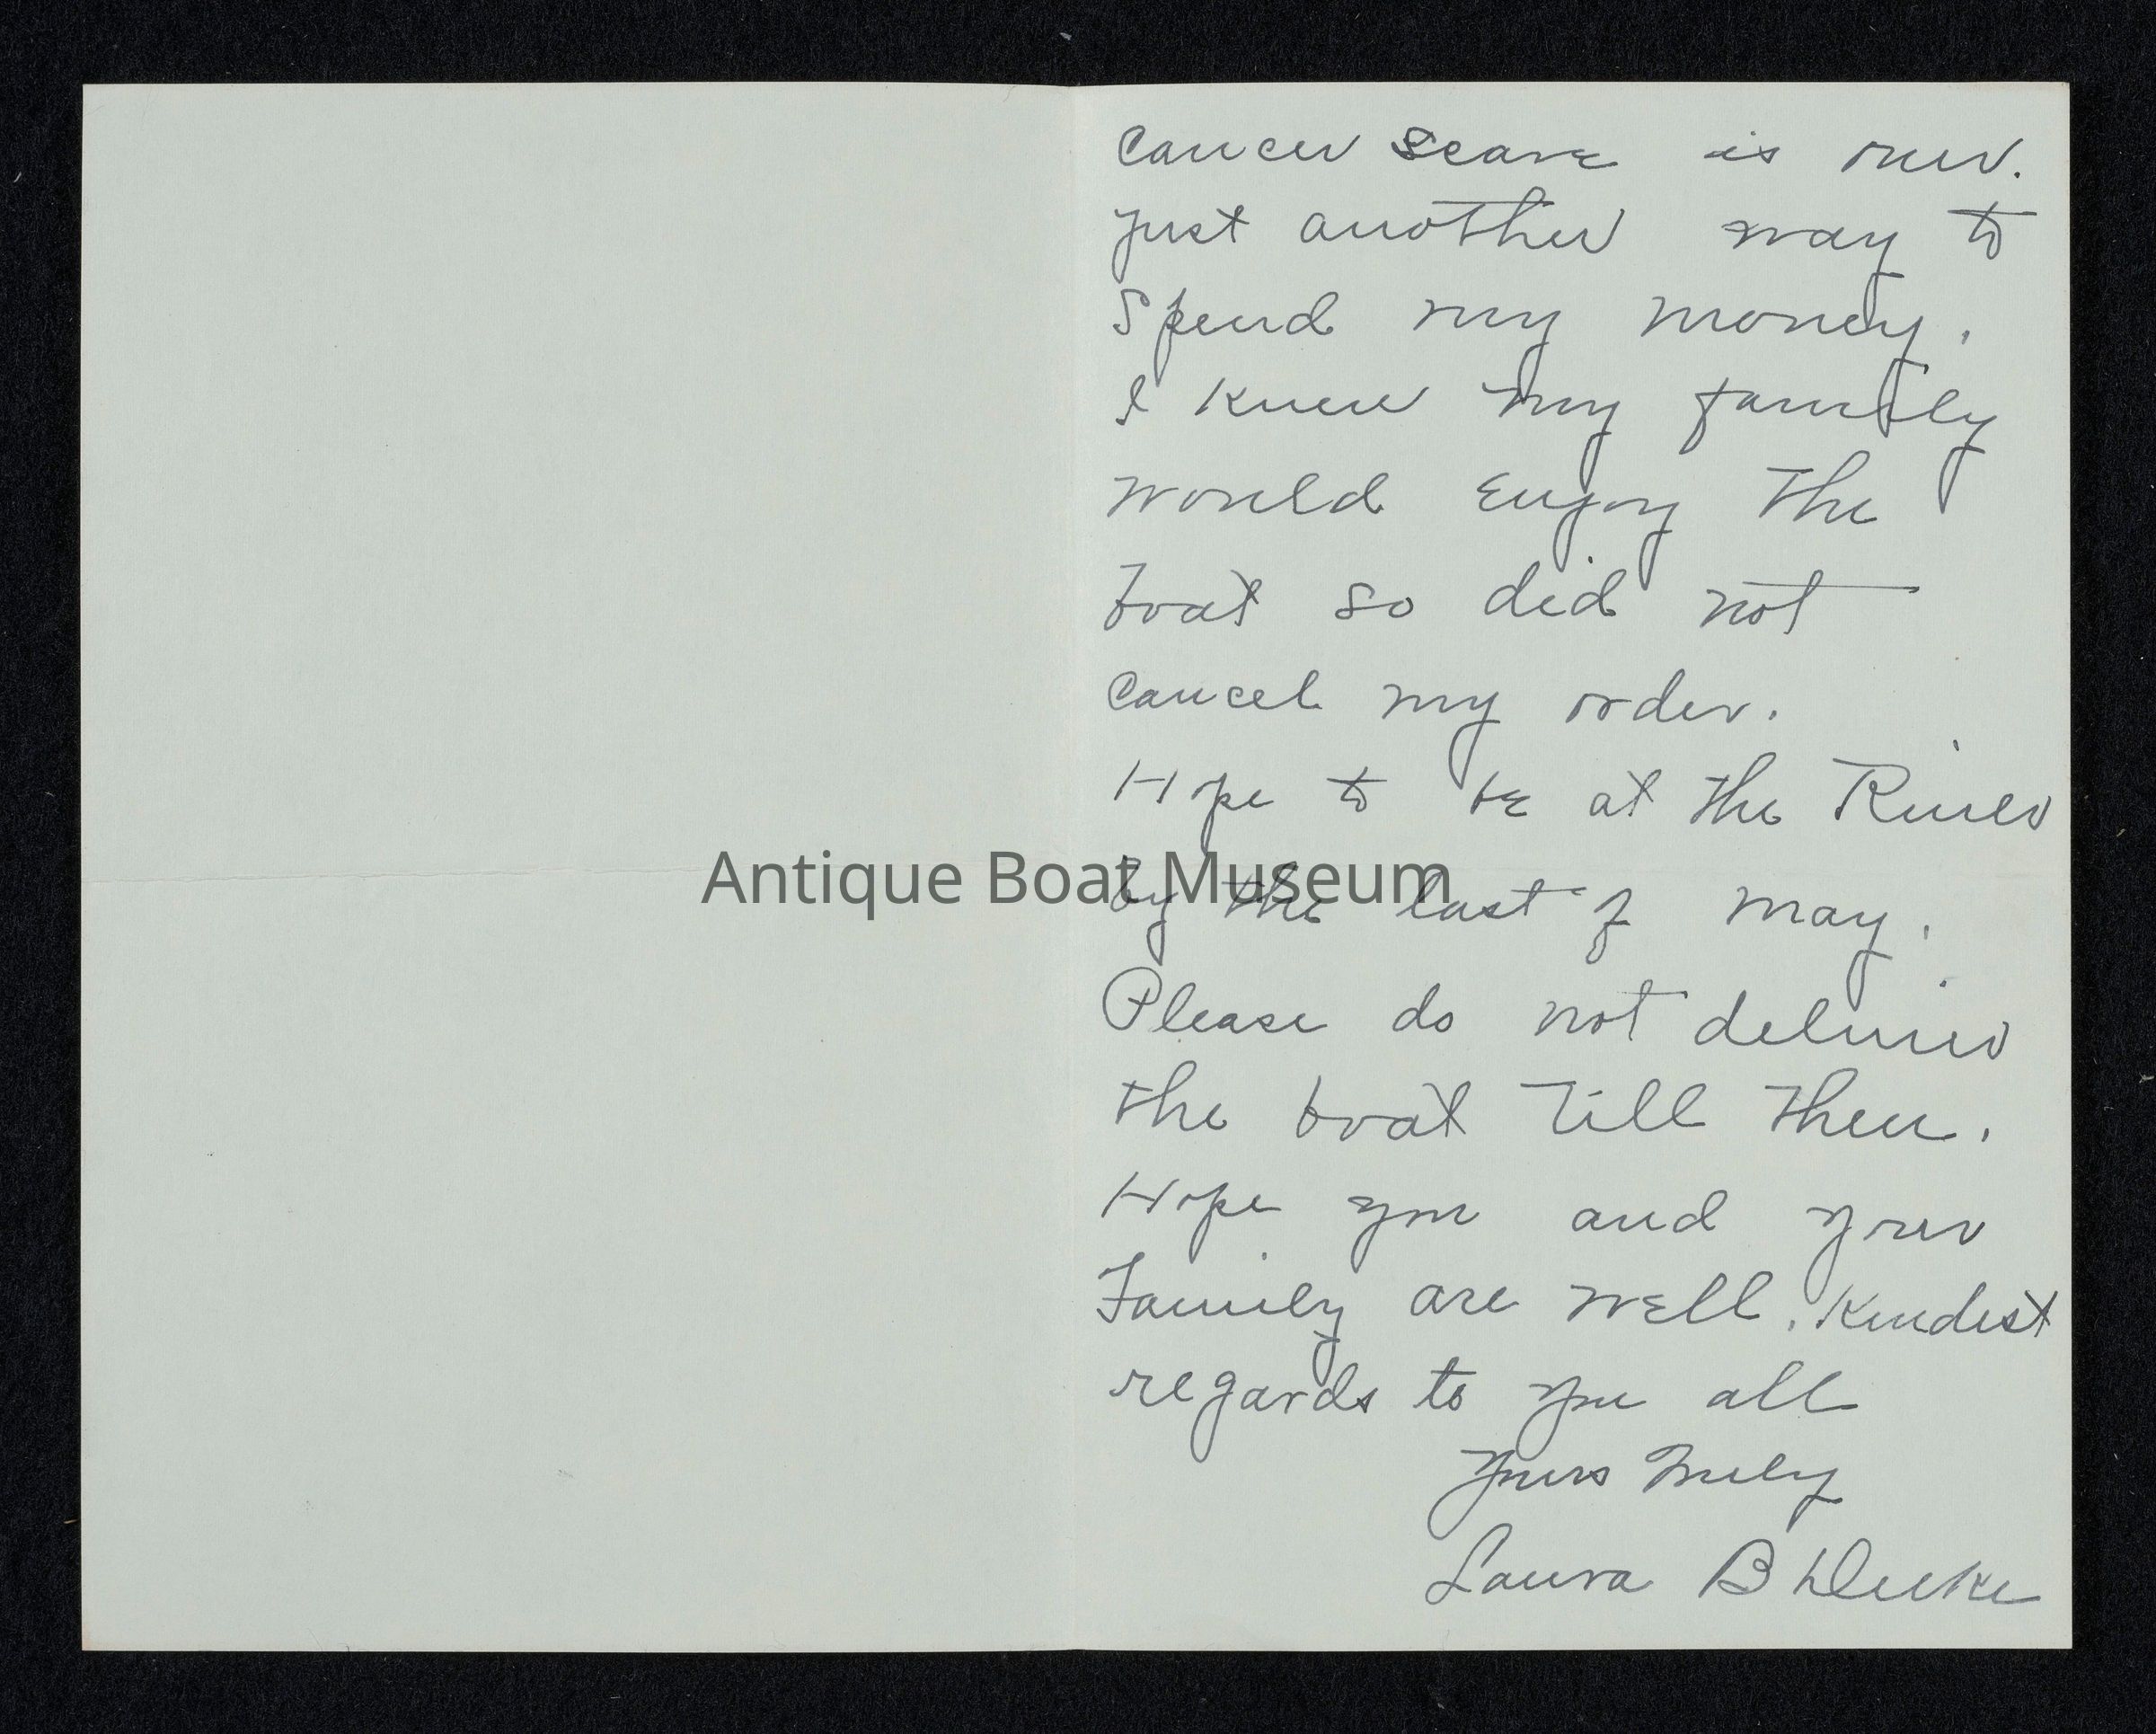 Cancer scare is over.
Just another way to
Spend my money.
I knew my family
would enjoy the
boat so did not
Cancel my order.
Hope to be at the River
Antique Boat Museum
by the last of may.
Please do not deliver
the boat till then.
Hope you and your
Family are well. Kindest
regards to you all
Yours truly
Laura B